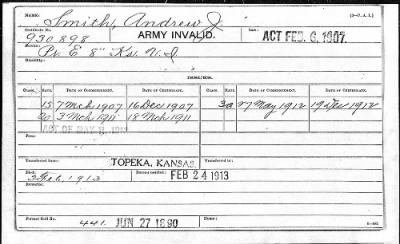 Smith, Andrew J.
(3—P. A. I.)
930898 ARMY INVALID. ACT FEB. 6, 1907.
Pr. E 8" Ks. V. I.
Disability:
CLASS. RATE DATE OF COMMENCEMENT. DATE OF CERTIFICATE. CLASS. RATE DATE OF COMMENCEMENT. DATE OF CERTIFICATE.
15 7 Mch 1907 16 Dec 1907 27 May 1912 19 Dec 1912
20 3 Mch 1911 18 Mch 1911
ACT OF MAY 11, 1912
Transferred to:
Transferred from: TOPEKA, KANSAS.
Died: 3 Feb. 1913 Bureau notified: FEB 24 1913
Remarks:
Former Roll No. 441. JUN 27 1890